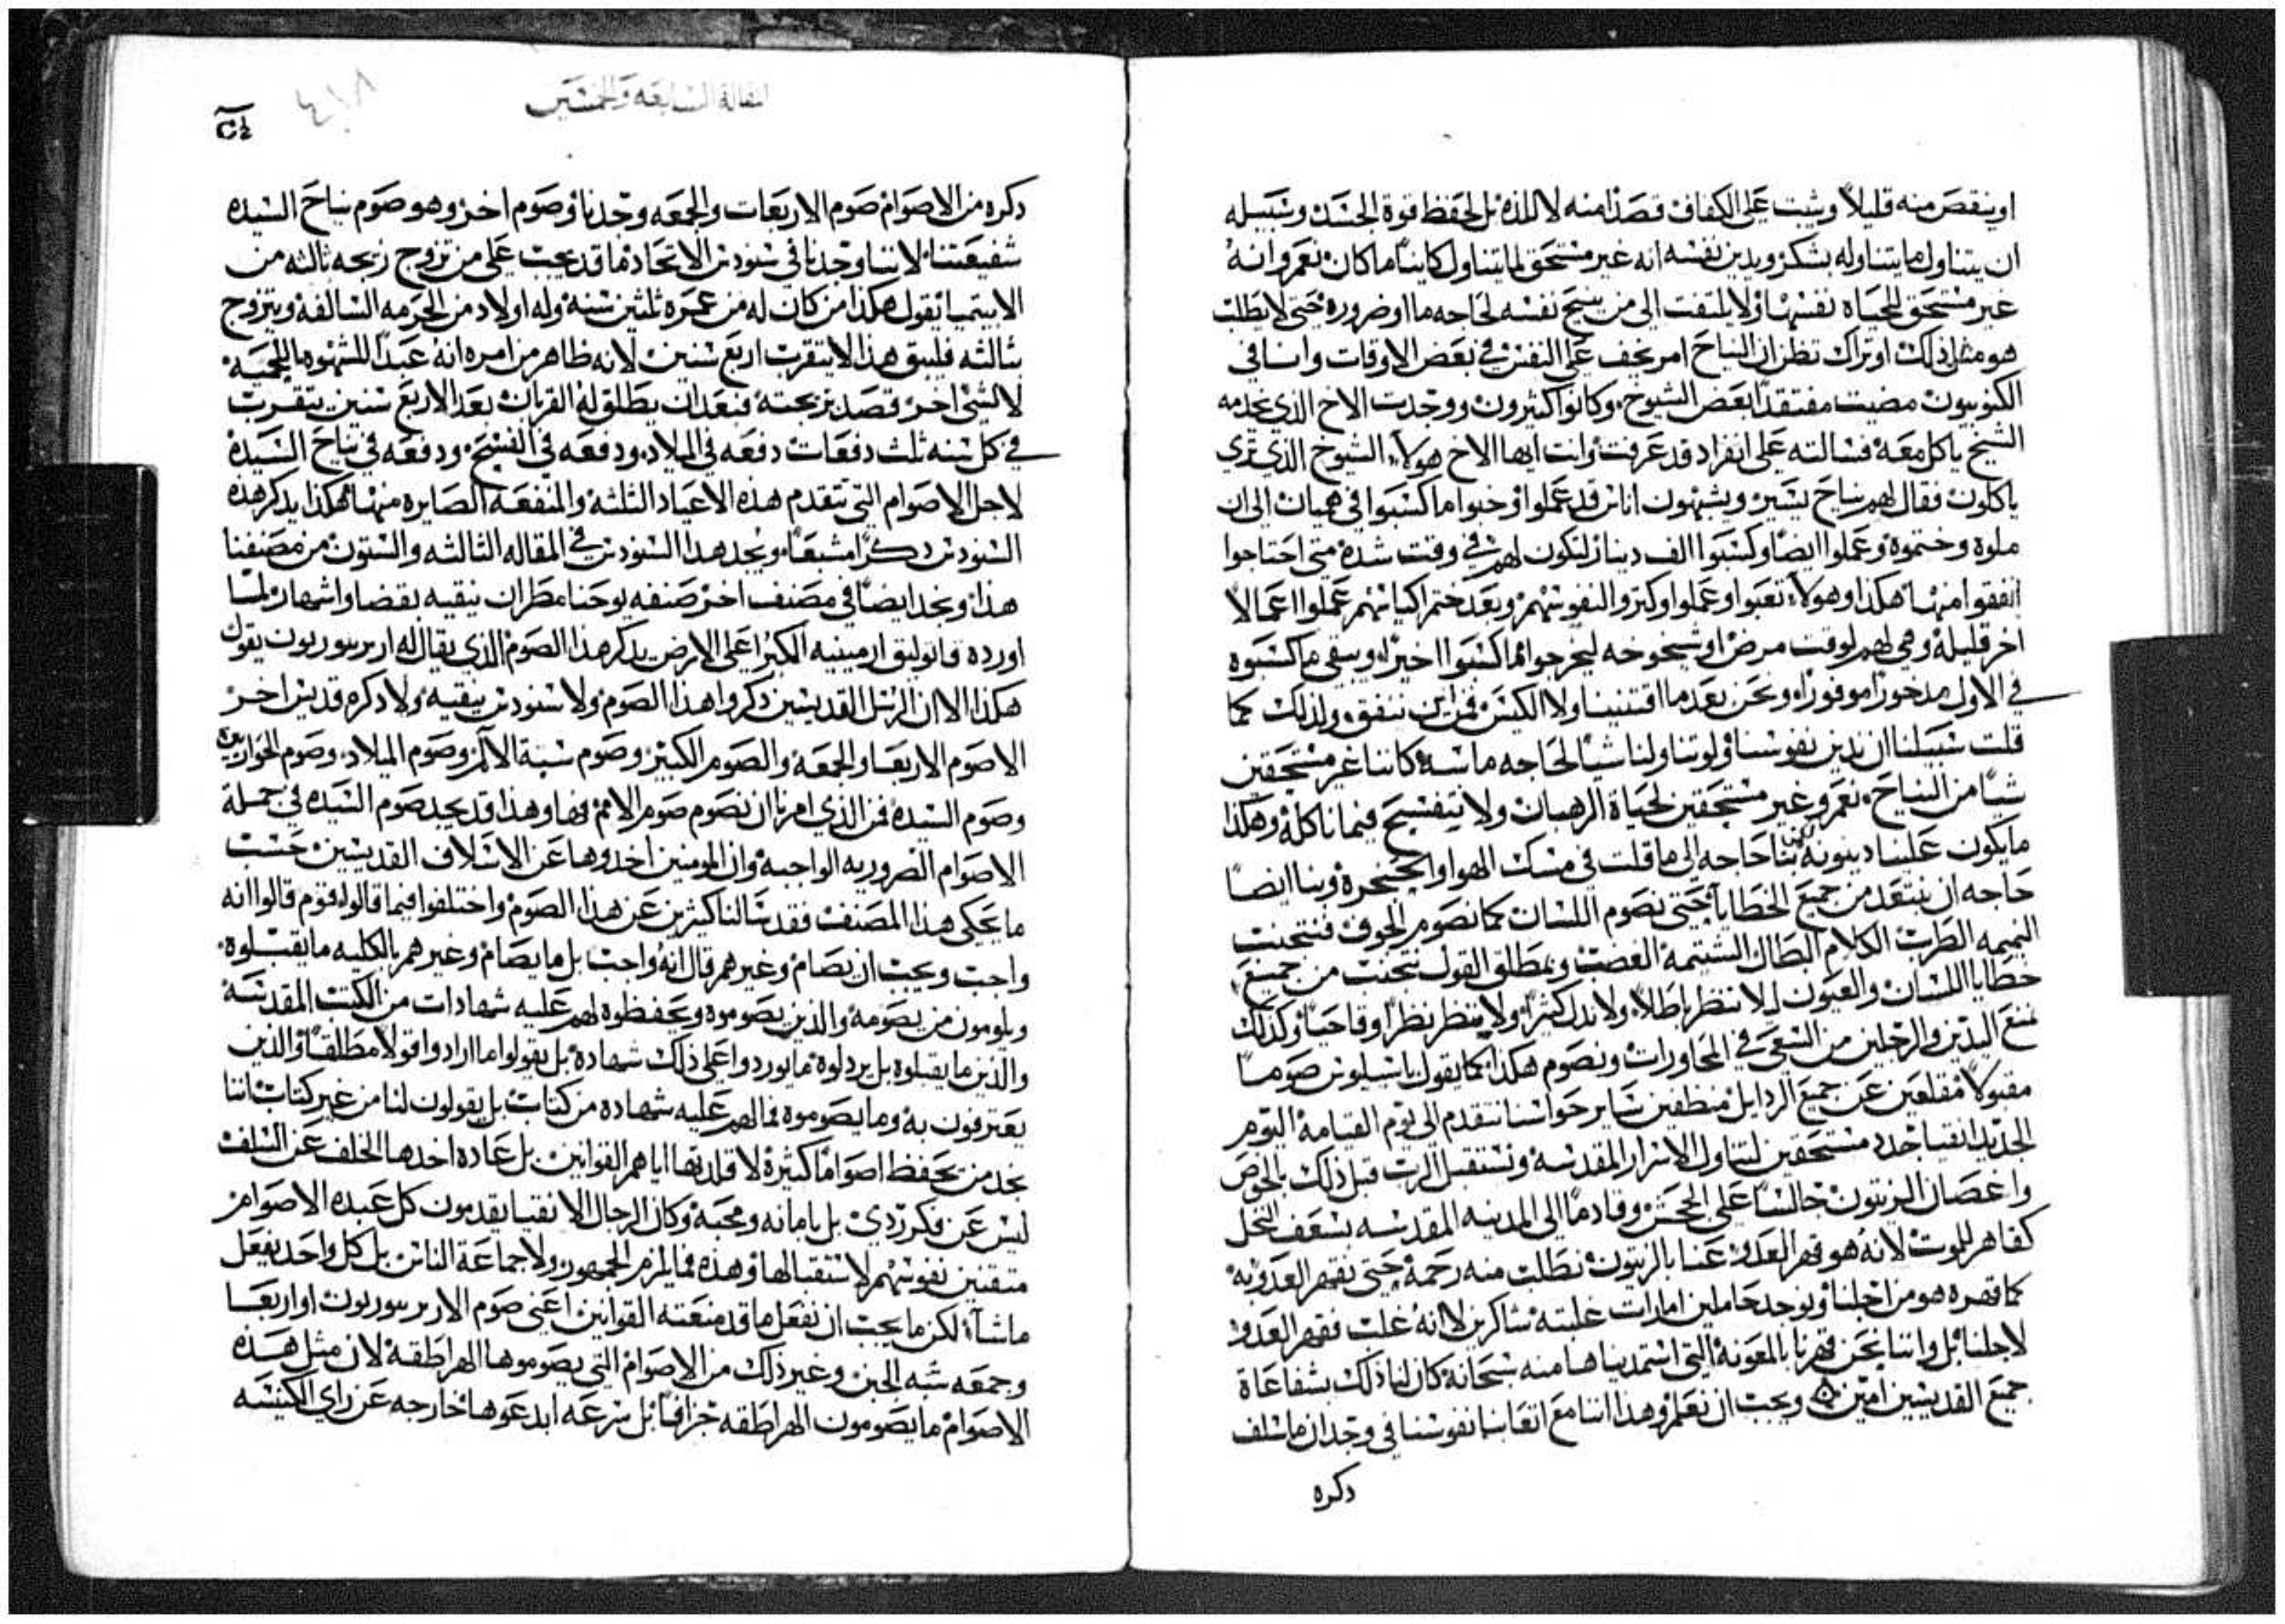 او ينقص منه قليلاً ويثبت على الكفاف قصدًا منه لا للذه بل لحفظ قوة الجسد وسبيله
ان يتناول ما يتناوله بشكر ويدين نفسه انه غير مستحق لما يتناول كاينًا ما كان نعم وانه
غير مستحق للحياه نفسها ولا يلتفت الى من ينيح نفسه لحاجه ما او ضروره حتى لا يطلب
هو مثل ذلك او تراك تظن ان النياح امر يخف على النفس في بعض الاوقات وانا في
الكنوبيون مضيت مفتقدًا بعض الشيوخ وكانوا كثيرون ووجدت الاخ الذي يخدمه
الشيخ ياكل معه فسالته على انفراد قد عرفت وانت ايها الاخ هولاء الشيوخ الذي ترى
ياكلون فقال لهم نياح يسير ويشبهون اناس قد عملوا وخبوا ما كسبوا في هميان الى ان
ملوه وختموه وعملوا ايضًا وكسبوا الف دينار لتكون لهم في وقت شده متى احتاجوا
انفقوا منها هكذا وهولاء تعبوا وعملوا وكنزوا لنفوسهم وبعد ختم اكياسهم عملوا اعمالاً
اخر قليله وهي لهم لوقت مرض او شيخوخه ليخرجوا مما كسبوا اخيرًا ويبقى ما كسبوه
في الاول مدخورًا موفورًا ونحن بعد ما اقتنينا ولا الكيس فمن اين ننفق ولذلك كما
قلت سبيلنا ان ندين نفوسنا ولو تناولنا شيًا لحاجه ماسه كاننا غير مستحقين
شيًا من النياح نعم وغير مستحقين لحياة الرهبان ولا نتفسح فيما ناكله وهكذا
ما يكون علينا دينونه لكن بنا حاجه الى ما قلت في مسك الهوا والحنجره وبنا ايضًا
حاجه ان نبتعد من جميع الخطايا حتى نصوم اللسان كما نصوم الجوف فنتجنب
النميمه الطرب الكلام البطال الشتيمه الغضب وبمطلق القول نتجنب من جميع
خطايا اللسان والعيون لا ننظر باطلاً ولا ندل كثيرًا ولا ننظر نظرًا وقاحيًا وكذلك
نمنع اليدين والرجلين من السعي في المحاورات ونصوم هكذا كما يقول باسيليوس صومًا
مقبولاً مقلعين عن جميع الردايل منظفين ساير حواسنا نتقدم الى يوم القيامه اليوم
الجديد انقيا جدد مستحقين لتناول الاسرار المقدسه ونستقبل الرب قبل ذلك بالخوص
واغصان الزيتون جالسًا على الجحش وقادمًا الى المدينه المقدسه بسعف النخل
كقاهر للموت لانه هو قهر العدو عنا بالزيتون نطلب منه رحمه حتى نقهر العدو به
كما قهره هو من اجلنا ونوجد حاملين امارات غلبته شاكرين لا انه غلب فقهر العدو
لاجلنا بل واننا نحن قهرنا بالمعونه التي استمديناها منه سبحانه كان لنا ذلك بشفاعاة
جميع القديسين امين ويجب ان نعلم وهذا اننا مع اتعابنا نفوسنا في وجدان ما سلف
دكره
المقالة السابعه والخمسين
دكره من الاصوام صوم الاربعات والجمعه وجدنا وصوم اخر وهو صوم نياح السيده
شفيعتنا لاننا وجدنا في سنودس الاتحاد ما قد يجب على من تزوج زيجه ثالثه من
الابيتميا نقول هكذا من كان له من عمره ثلثين سنه وله اولاد من الحرمه السالفه ويتزوج
ثالثه فليبق هذا لا يتقرب اربع سنين لانه ظاهر من امره انه عبدًا للشهوه اللحميه
لا لشي اخر قصد تزيجته فبعد ان يطلق له القربان بعد الاربع سنين يتقرب
في كل سنه ثلث دفعات دفعه في الميلاد ودفعه في الفسح ودفعه في نياح السيده
لاجل الاصوام التي تتقدم هذه الاعياد الثلثه والمنفعه الصايره منها هكذا يدكر هذه
السنودس دكرًا مشبعًا ونجد هذا السنودس في المقاله الثالثه والستون من مصنفنا
هذا ونجد ايضًا في مصنف اخر صنفه يوحنا مطران نيقيه بقضا واشهار لما
اورده قاثوليق ارمينيه الكبرا على الارض يدكر هذا الصوم الذي يقال له ارتزيبوريون يقول
هكذا الا ان الرسل القديسين دكروا هذا الصوم ولا سنودس نيقيه ولا دكره قديس اخر
الا صوم الاربعا والجمعه والصوم الكبير وصوم سبة الالام وصوم الميلاد وصوم الحواريين
وصوم السيده فمن الذي امرنا ان نصوم صوم الامم فها وهذا قد يجد صوم السيده في جملة
الاصوام الضروريه الواجبه وان المومنين اخدوها عن الاسلاف القديسين حسب
ما يحكى هذا المصنف فقد سالنا كثيرين عن هذا الصوم واختلفوا فيما قالوه فقوم قالوا انه
واجب ويجب ان يصام وغيرهم قال انه واجب بل ما يصام وغيرهم بالكليه ما يقبلوه
ويلومون من يصومه والذين يصوموه ويحفظوه لهم عليه شهادات من الكتب المقدسه
والذين ما يقبلوه بل يردلوه ما يوردوا على ذلك شهاده بل يقولوا ما ارادوا قولا مطلقًا والذين
يعترفون به وما يصوموه فما لهم عليه شهاده من كتاب بل يقولون لنا من غير كتاب اننا
نجد من يحفظ اصوامًا كثيرة لا قلدتها اياهم القوانين بل عاده اخدها الخلف عن السلف
ليس عن فكر ردي بل بامانه ومحبة وكان الرجال الاتقيا يقدمون كل عبده الاصوام
متقنين نفوسهم لاستقبالها وهذه فما يلزم الجمهور ولا جماعة الناس بل كل واحد يفعل
ما شاء لكن ما يجب ان نفعل ما قد منعته القوانين اعني صوم الارتزيبوريون او اربعا
وجمعه سبه الجبن وغير ذلك من الاصوام التي يصوموها الهراطقه لان مثل هذه
الاصوام ما يصومون الهراطقه جزافًا بل بزعه ابدعوها خارجه عن راي الكنيسه